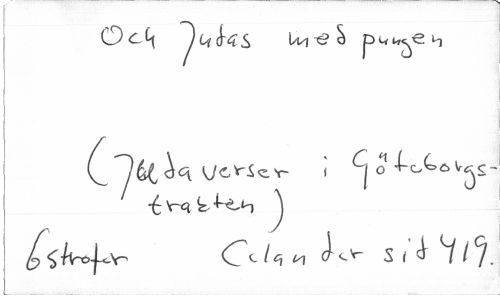 Och Judas med pungen
(Judaverser i Göteborgs-
trakten)
6 strofer Celander sid 419.